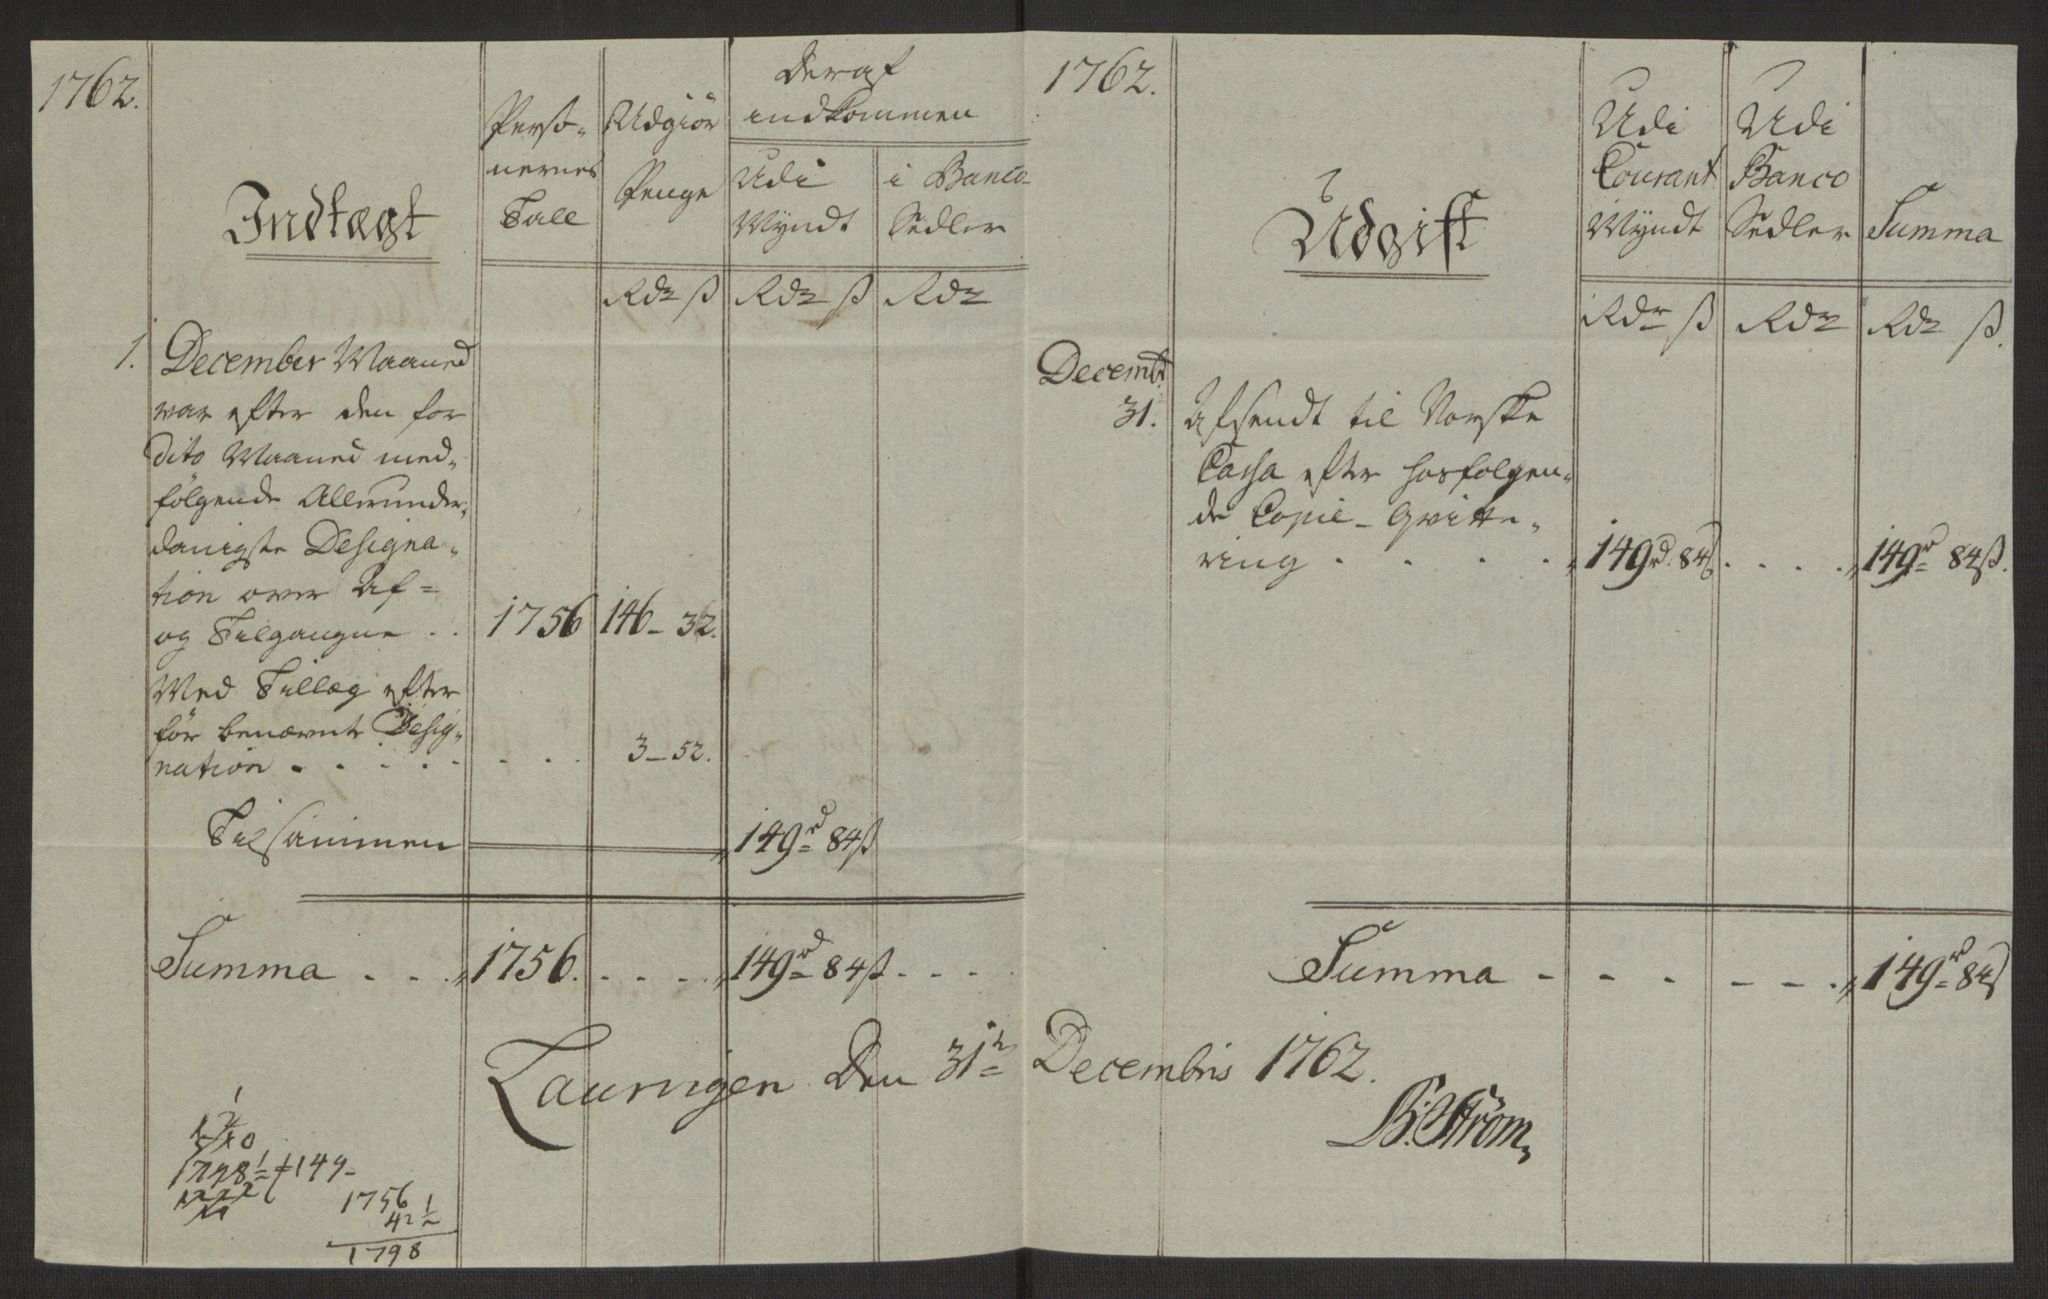 1762.
Indtægt
Perso-
nernes
Tall
Udgiør
Penge
Deraf
indkommen
Udi
Myndt
i Banco-
Sedler
Rdr ß
Rdr ß
Rdr
1. December Maaned
var efter den for
dito Maaned med-
følgende Allerunder-
danigste Designa-
tion over Af=
og Tilgangne . . 1756 146 - 32.
Med Tillæg efter
før benævnte Desig-
nation . . . . . . . . 3 - 52.
Tilsammen 149rd 84ß
Summa . . . 1756. . . . . 149rd 84ß . . .
1762.
Udgift
Udi
Courant
Myndt
Udi
Banco
Sedler
Summa
Rdr ß
Rdr
Rdr ß.
Decembr
31. Afsendt til Norske
Cassa efter hosfølgen-
de Copie - Qvitte-
ring . . . . 149rd. 84ß . . . . 149rd 84ß.
Summa - - - - - - . 149rd 84ß
Laurvigen Den 31te Decembris 1762.
B. Strøm
1798½ 149-
1756
42½
1798